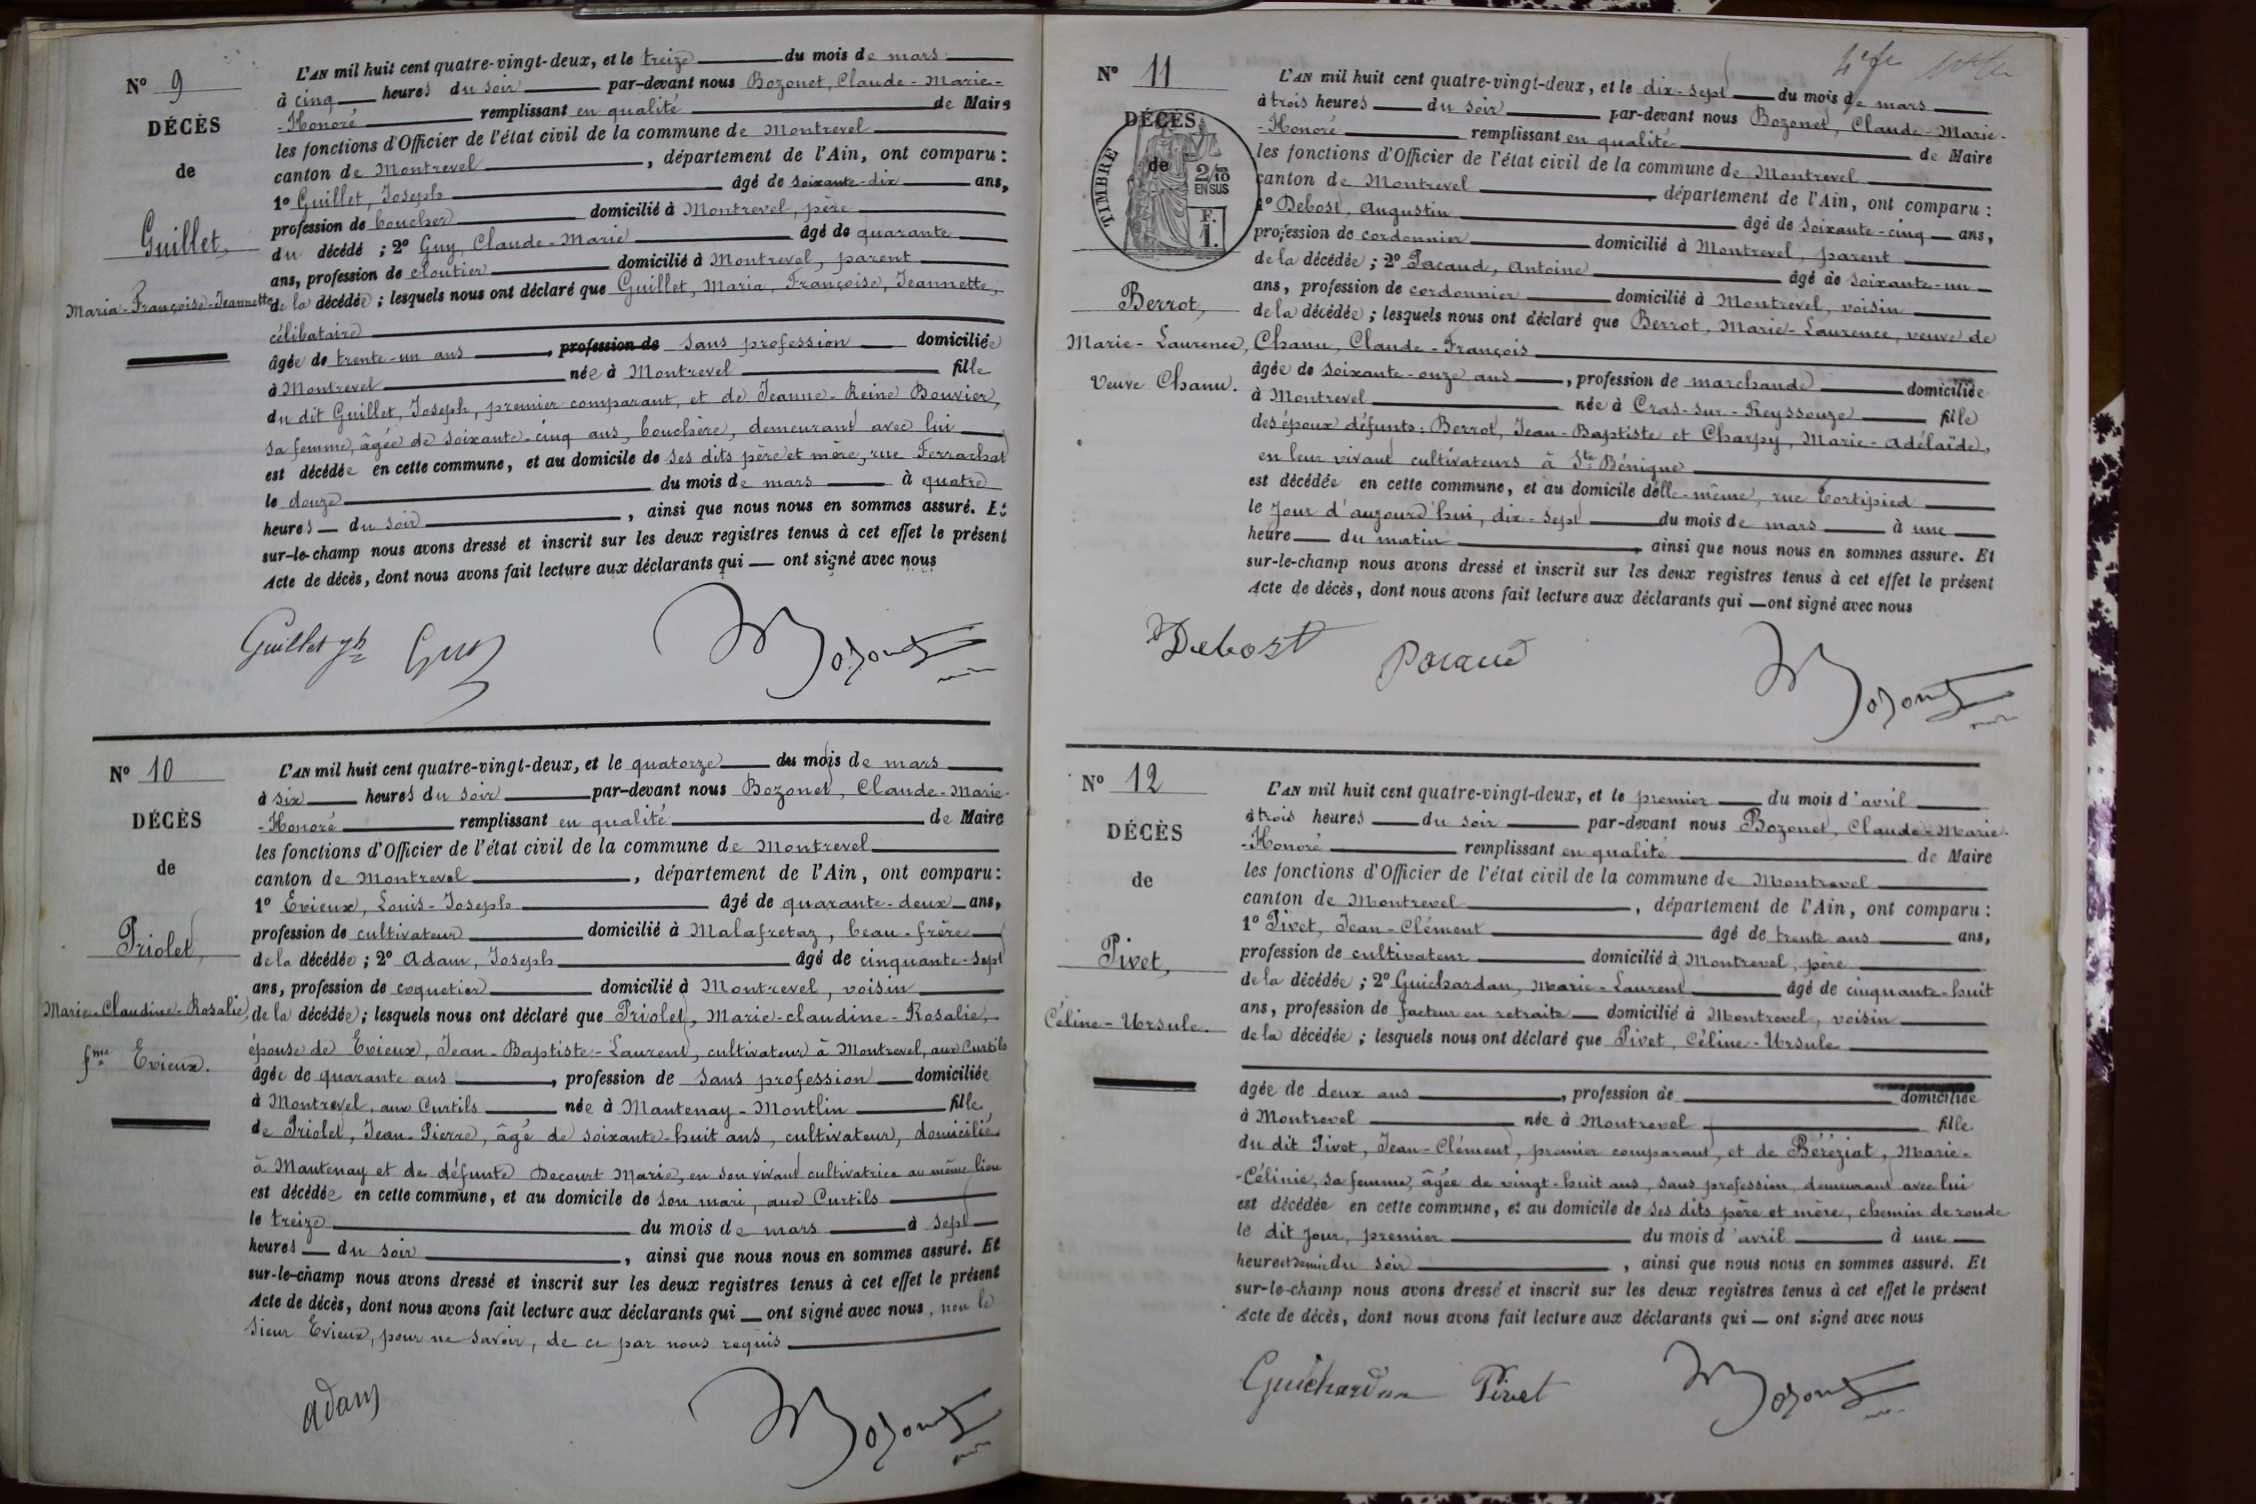 N° 9
DÉCÈS
de
Guillet,
Maria-Françoise-Jeannette
L'AN mil huit cent quatre-vingt-deux, et le treize du mois de mars
à cinq heures du soir par-devant nous Bozonet, Claude-Marie-
-Honoré remplissant en qualité de Maire
les fonctions d'Officier de l'état civil de la commune de Montrevel
canton de Montrevel, département de l'Ain, ont comparu :
1° Guillet, Joseph âgé de soixante-dix ans,
profession de boucher domicilié à Montrevel, père
du décédé ; 2° Guy, Claude-Marie âgé de quarante
ans, profession de cloutier domicilié à Montrevel, parent
de la décédée ; lesquels nous ont déclaré que Guillet, Maria, Françoise, Jeannette,
célibataire
âgée de trente-un ans, profession de sans profession domiciliée
à Montrevel née à Montrevel fille
du dit Guillet, Joseph, premier comparant, et de Jeanne-Reine Bouvier,
sa femme, âgée de soixante-cinq ans, bouchère, demeurant avec lui
est décédée en cette commune, et au domicile de ses dits père et mère, rue Ferrachat
le douze du mois de mars à quatre
heures du soir, ainsi que nous nous en sommes assuré. Et
sur-le-champ nous avons dressé et inscrit sur les deux registres tenus à cet effet le présent
Acte de décès, dont nous avons fait lecture aux déclarants qui ont signé avec nous
Guillet jh Guy Bozonet
N° 10
DÉCÈS
de
Priolet,
Marie-Claudine-Rosalie,
fme Evieux.
L'AN mil huit cent quatre-vingt-deux, et le quatorze du mois de mars
à six heures du soir par-devant nous Bozonet, Claude-Marie-
-Honoré remplissant en qualité de Maire
les fonctions d'Officier de l'état civil de la commune de Montrevel
canton de Montrevel, département de l'Ain, ont comparu :
1° Evieux, Louis-Joseph âgé de quarante-deux ans,
profession de cultivateur domicilié à Malafretaz, beau-frère
de la décédée ; 2° Adam, Joseph âgé de cinquante-sept
ans, profession de coquetier domicilié à Montrevel, voisin
de la décédée ; lesquels nous ont déclaré que Priolet, Marie-claudine-Rosalie,
épouse de Evieux, Jean-Baptiste-Laurent, cultivateur à Montrevel, aux Curtils
âgée de quarante ans, profession de sans profession domiciliée
à Montrevel, aux Curtils née à Mantenay-Montlin fille
de Priolet, Jean-Pierre, âgé de soixante-huit ans, cultivateur, domicilié
à Mantenay et de défunte Decourt Marie, en son vivant cultivatrice au même lieu
est décédée en cette commune, et au domicile de son mari, aux Curtils
le treize du mois de mars à sept
heures du soir, ainsi que nous nous en sommes assuré. Et
sur-le-champ nous avons dressé et inscrit sur les deux registres tenus à cet effet le présent
Acte de décès, dont nous avons fait lecture aux déclarants qui ont signé avec nous, non le
sieur Evieux, pour ne savoir, de ce par nous requis
Adam Bozonet
N° 11
DÉCÈS
de
TIMBRE
2/10
EN SUS
F.
1.
Berrot,
Marie-Laurence,
Veuve Chanu.
L'AN mil huit cent quatre-vingt-deux, et le dix-sept du mois de mars
à trois heures du soir par-devant nous Bozonet, Claude-Marie-
-Honoré remplissant en qualité de Maire
les fonctions d'Officier de l'état civil de la commune de Montrevel
canton de Montrevel, département de l'Ain, ont comparu :
1° Debost, Augustin âgé de soixante-cinq ans,
profession de cordonnier domicilié à Montrevel, parent
de la décédée ; 2° Pacaud, Antoine âgé de soixante-un
ans, profession de cordonnier domicilié à Montrevel, voisin
de la décédée ; lesquels nous ont déclaré que Berrot, Marie-Laurence, veuve de
Chanu, Claude-François
âgée de soixante-onze ans, profession de marchande domiciliée
à Montrevel née à Cras-sur-Reyssouze fille
des époux défunts : Berrot, Jean-Baptiste et Charpy, Marie-Adélaïde,
en leur vivant cultivateurs à Ste Bénigne
est décédée en cette commune, et au domicile d'elle-même, rue Tortipied
le jour d'aujourd'hui, dix-sept du mois de mars à une
heure du matin, ainsi que nous nous en sommes assuré. Et
sur-le-champ nous avons dressé et inscrit sur les deux registres tenus à cet effet le présent
Acte de décès, dont nous avons fait lecture aux déclarants qui ont signé avec nous
Debost Pacaud Bozonet
N° 12
DÉCÈS
de
Pivet,
Céline-Ursule.
L'AN mil huit cent quatre-vingt-deux, et le premier du mois d'avril
à trois heures du soir par-devant nous Bozonet, Claude-Marie-
-Honoré remplissant en qualité de Maire
les fonctions d'Officier de l'état civil de la commune de Montrevel
canton de Montrevel, département de l'Ain, ont comparu :
1° Pivet, Jean-Clément âgé de trente ans ans,
profession de cultivateur domicilié à Montrevel, père
de la décédée ; 2° Guichardan, Marie-Laurent âgé de cinquante-huit
ans, profession de facteur en retraite domicilié à Montrevel, voisin
de la décédée ; lesquels nous ont déclaré que Pivet, Céline-Ursule
âgée de deux ans, profession de domiciliée
à Montrevel née à Montrevel fille
du dit Pivet, Jean-Clément, premier comparant, et de Béréziat, Marie-
-Célinie, sa femme, âgée de vingt-huit ans, sans profession, demeurant avec lui
est décédée en cette commune, et au domicile de ses dits père et mère, chemin de ronde
le dit jour, premier du mois d'avril à une
heure et demie du soir, ainsi que nous nous en sommes assuré. Et
sur-le-champ nous avons dressé et inscrit sur les deux registres tenus à cet effet le présent
Acte de décès, dont nous avons fait lecture aux déclarants qui ont signé avec nous
Guichardan Pivet Bozonet